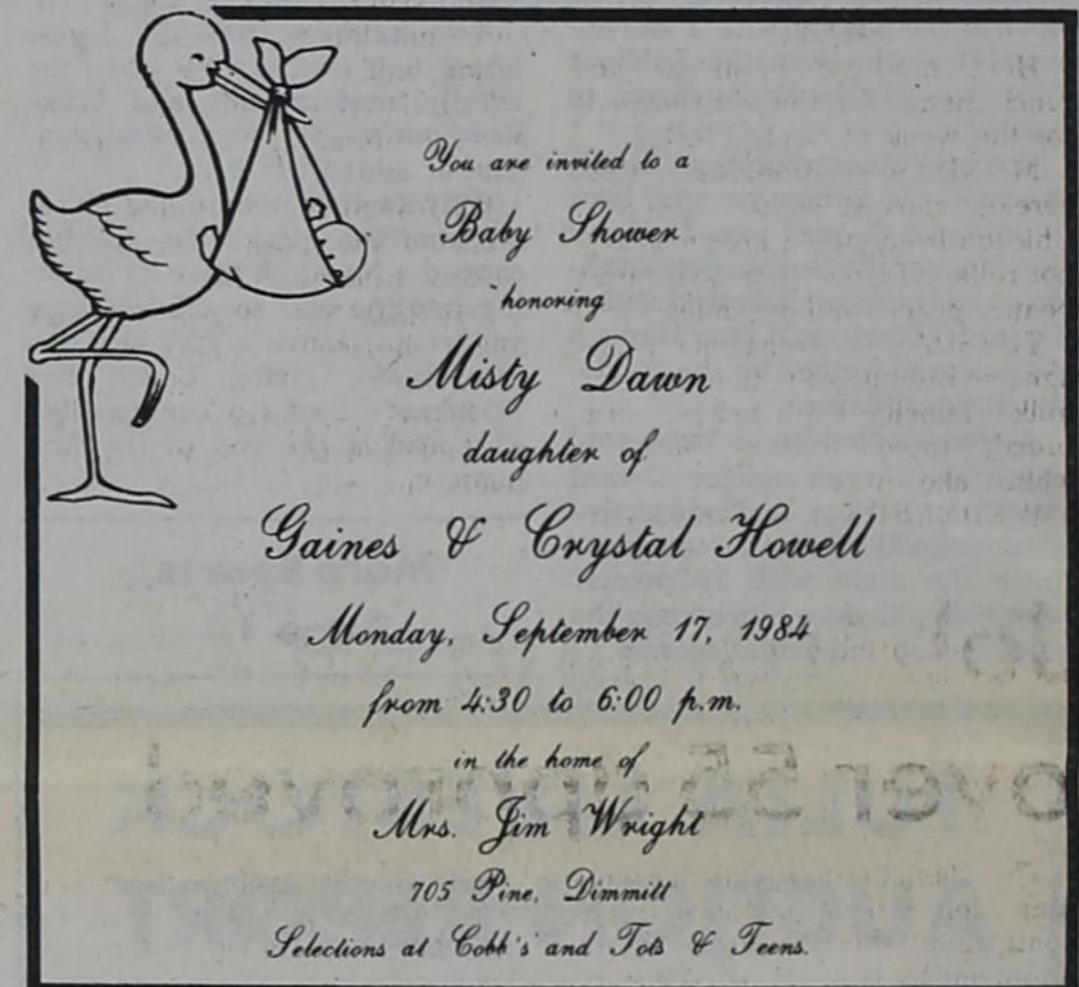 You are invited to a
Baby Shower
honoring
Misty Dawn
daughter of
Gaines & Crystal Howell
Monday, September 17, 1984
from 4:30 to 6:00 p.m.
in the home of
Mrs. Jim Wright
705 Pine, Dimmitt
Selections at Cobb's and Tots & Teens.